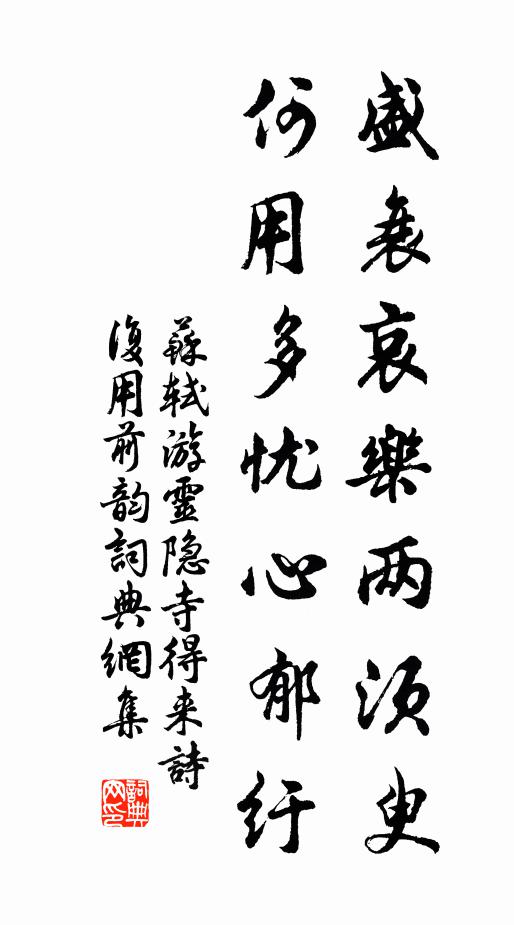 盛衰哀樂两须臾
何用多忧心郁纡
蘇軾游靈隐寺得来詩
復用前韵詞典網集
詞典网印